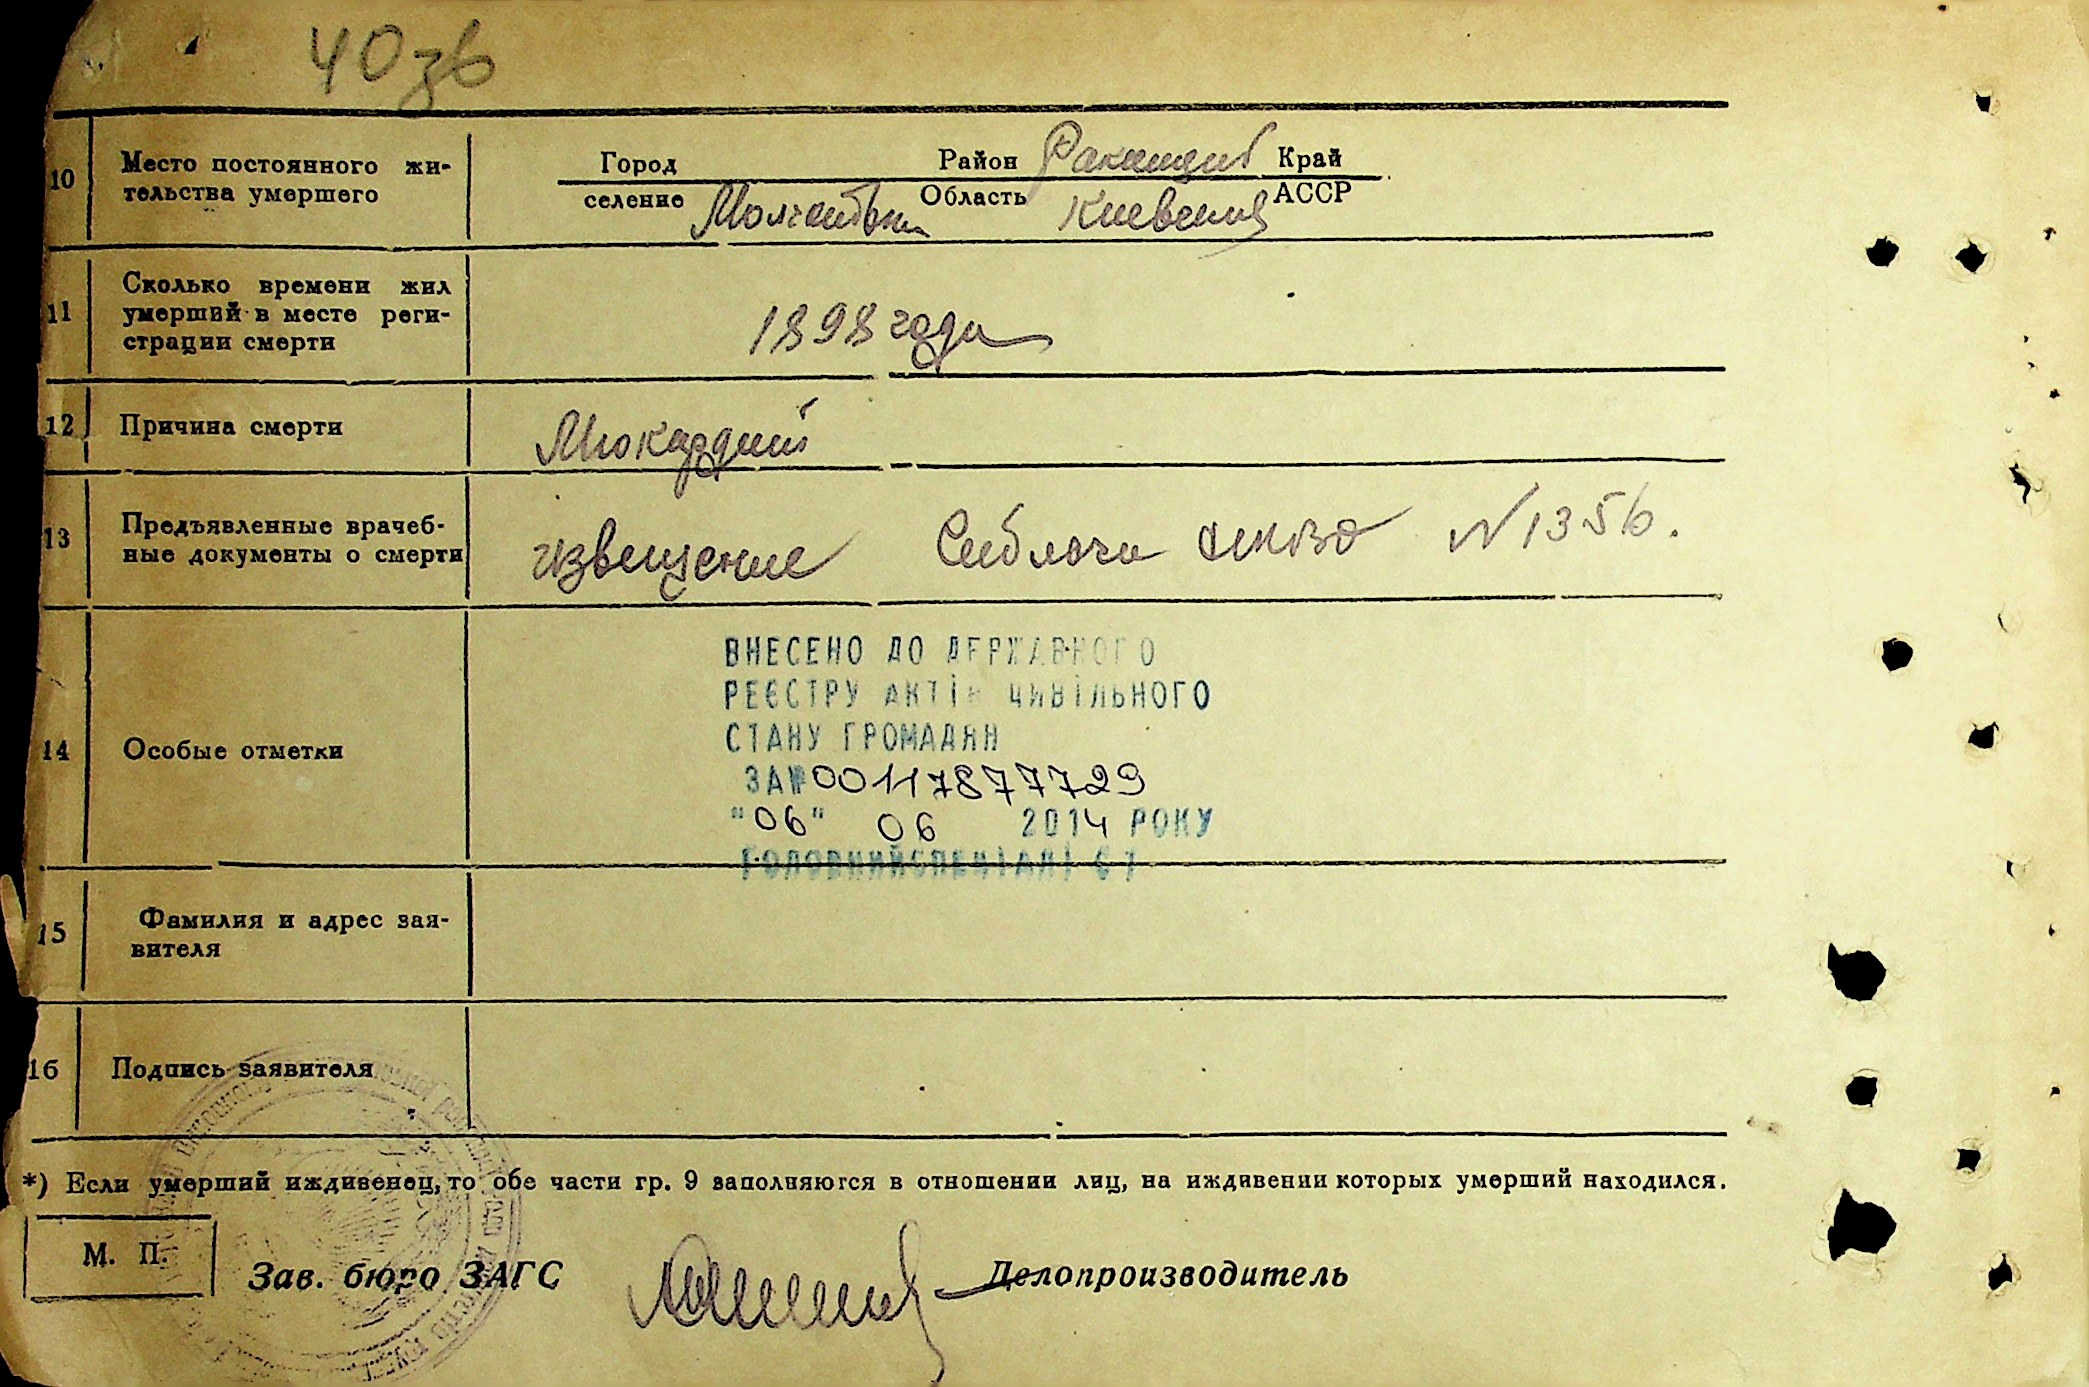 40 зв
10 Место постоянного жи-
тельства умершего
Город Район Край
селение Область Киевския АССР
11 Сколько времени жил
умерший в месте реги-
страции смерти
1898 года
12 Причина смерти
Миокардит
13 Предъявленные врачеб-
ные документы о смерти
извещение Сиблага НКВД N 1356.
14 Особые отметки
ВНЕСЕНО ДО ДЕРЖАВНОГО
РЕЄСТРУ АКТІВ ЦИВІЛЬНОГО
СТАНУ ГРОМАДЯН
ЗА № 00117877729
"06" 06 2014 РОКУ
ГОЛОВНИЙ СПЕЦІАЛІСТ
15 Фамилия и адрес зая-
вителя
16 Подпись заявителя
*) Если умерший иждивенец, то обе части гр. 9 заполняются в отношении лиц, на иждивении которых умерший находился.
М. П.
Зав. бюро ЗАГС Делопроизводитель